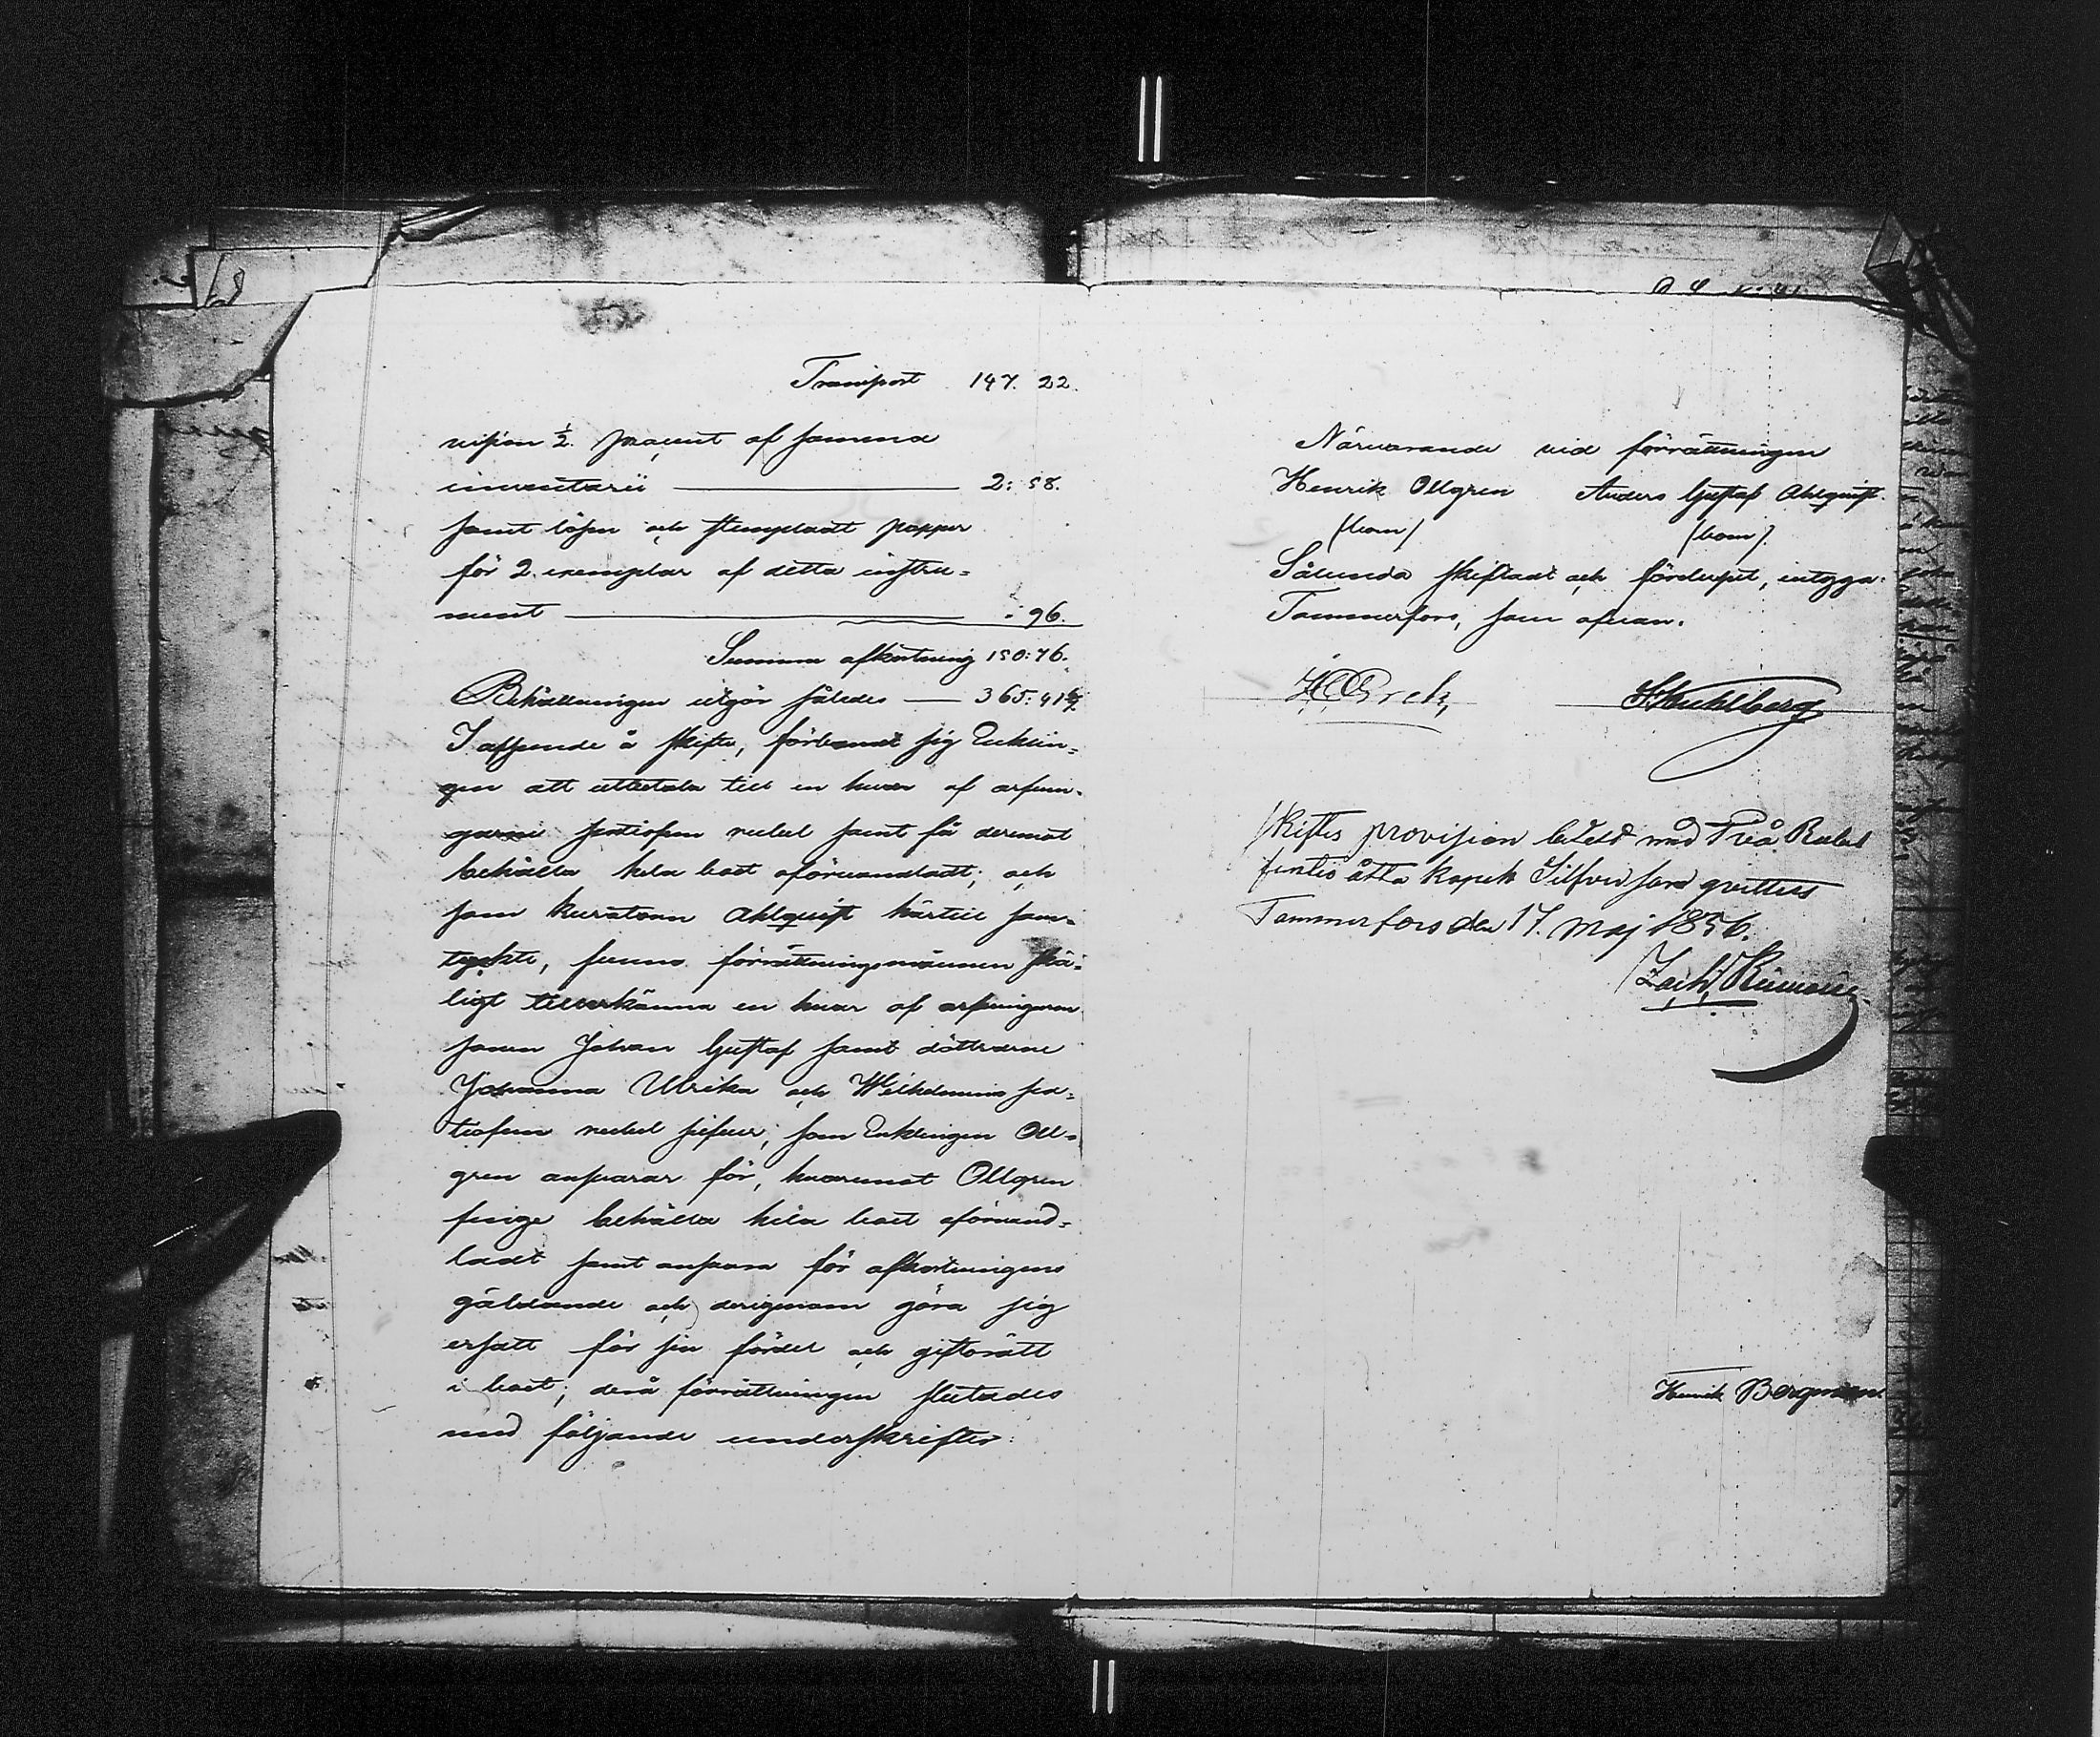 Transport 147. 22.
vision ½. procent af samma
inventarii — 2: 58.
samt lösen och stempladt papper
för 2. exemplar af detta instru=
ment — : 96.
Summa afkortning 150: 76.
Behållningen utgör således — 365: 41 4/7.
I afseende å skifte, förband sig Enklin=
gen att utbetala till en hvar af arfvin=
garne sextiofem rubel samt få deremot
behålla hela boet oförvandladt; och
som kuratorn Ahlquist härtill sam=
tyckte, funno förrättningsmännen skä=
ligt tillerkänna en hvar af arfvingarne
sonen Johan Gustaf samt döttrarne
Johanna Ulrika och Wilhelmina sex=
tiofem rubel silfver, som Enklingen Oll=
gren ansvarar för, hvaremot Ollgren
finge behålla hela boet oförvand=
ladt samt ansvara för afkortningens
gäldande och derigenom göra sig
ersatt för sin fördel och giftorätt
i boet; derå förrättningen slutades
med följande underskrifter:
Närvarande vid förrättningen
Henrik Ollgren Anders Gustaf Ahlquist.
(bom) (bom).
Sålunda skiftadt och fördelat, intyga:
Tammerfors, som ofvan.
Skiftes provision betald med Två Rubel
femtio åtta kopek Silfver som qvitteras
Tammerfors den 17. Maj 1856.
Henrik Bergman.